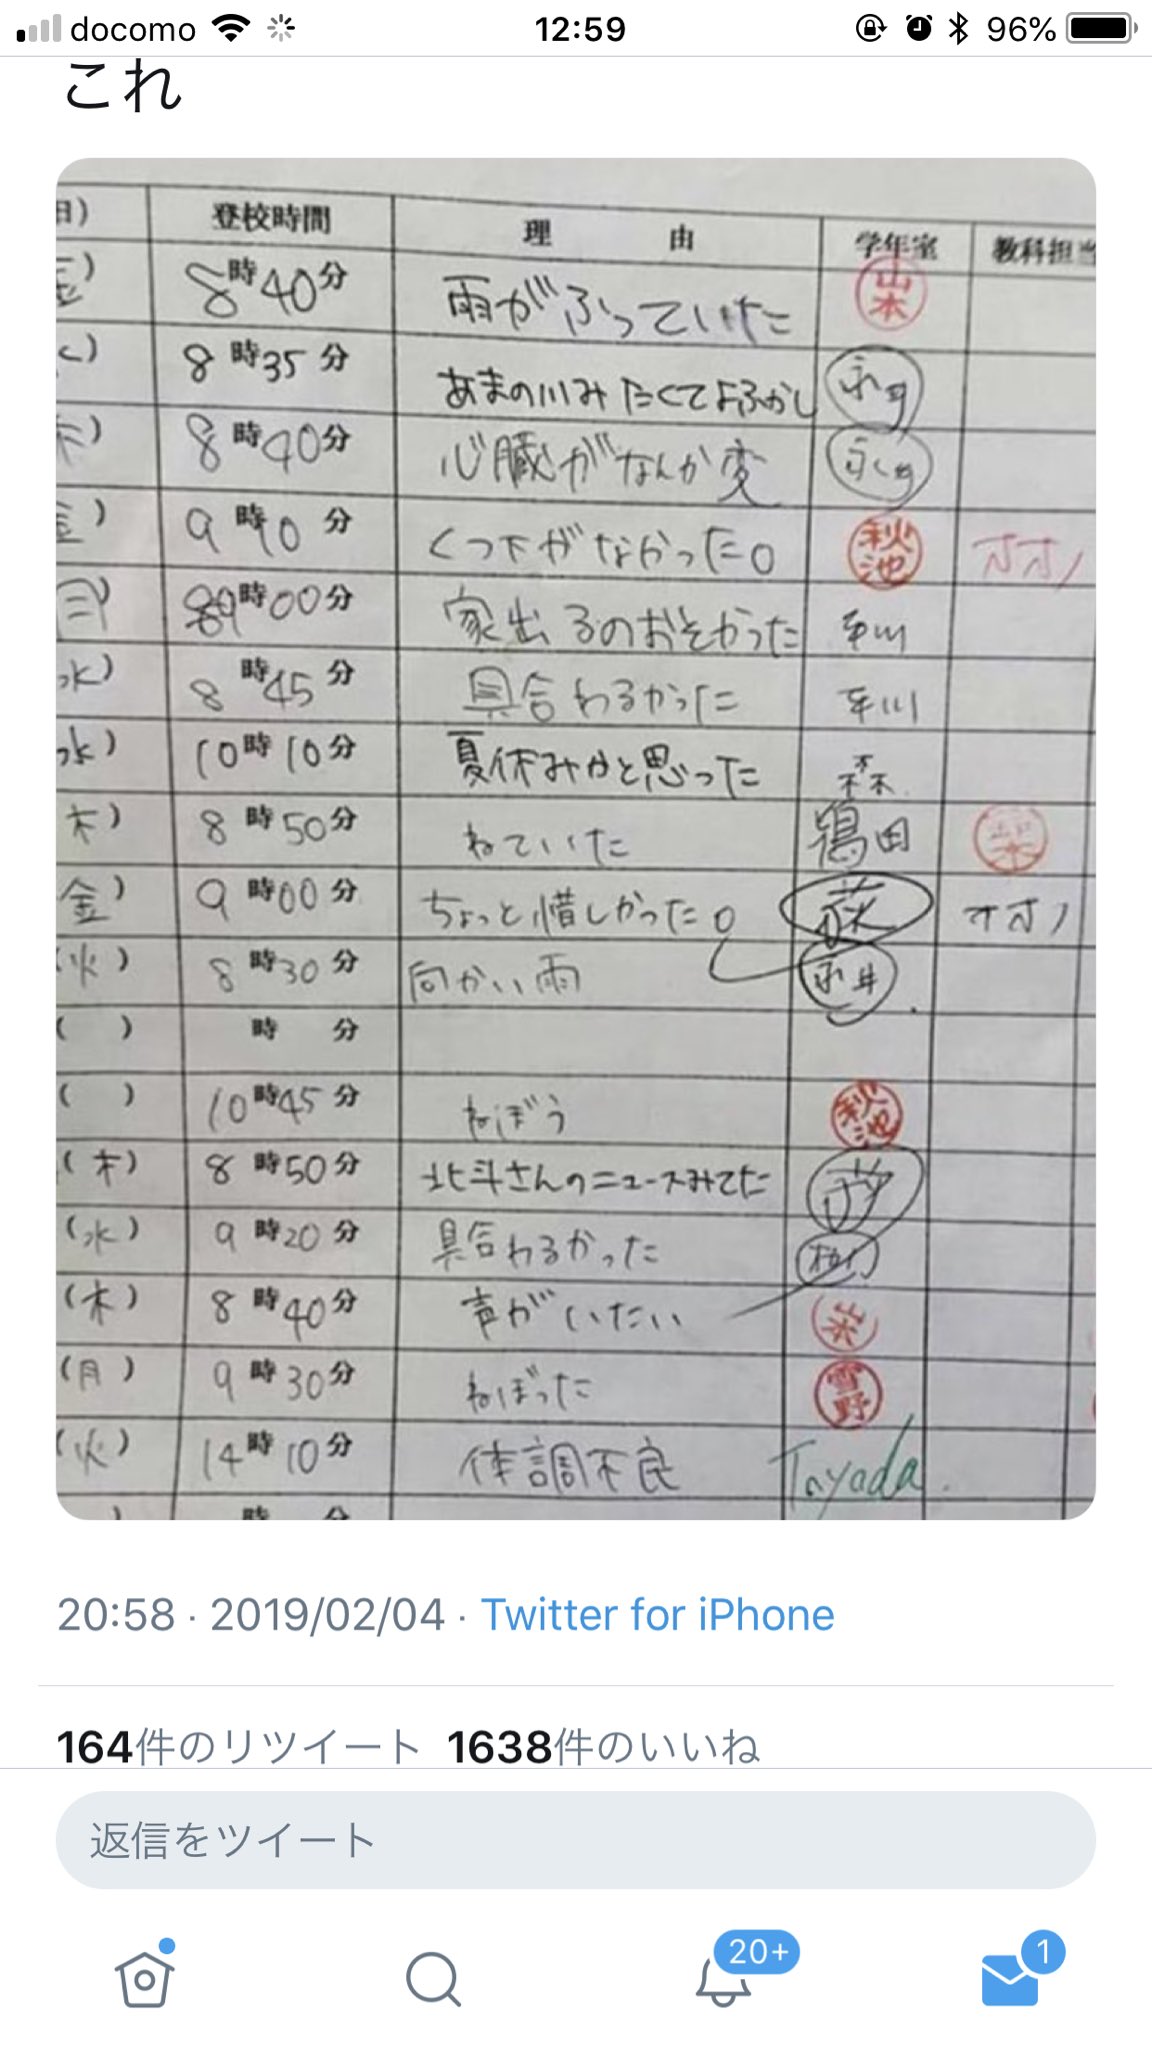 docomo 12:59 96%
これ
日) 登校時間 理由 学年室 教科担当
金) 8時40分 雨がふっていた 山本
8時35分 あまの川みたくてよふかし
木) 8時40分 心臓がなんか変
金) 9時10分 くつ下がなかった。 秋池 オオノ
月) 9時00分 家出るのおそかった
水) 8時45分 具合わるかった
水) 10時10分 夏休みかと思った 森
木) 8時50分 ねていた 鶴田
金) 9時00分 ちょっと惜しかった。 萩 オオノ
(火) 8時30分 向かい雨 永井
( ) 時 分
( ) 10時45分 ねぼう 秋池
(木) 8時50分 北斗さんのニュースみてた
(水) 9時20分 具合わるかった
(木) 8時40分 声がいたい
(月) 9時30分 ねぼった 雪野
(火) 14時10分 体調不良 Tayada.
) 時 分
20:58 · 2019/02/04 · Twitter for iPhone
164件のリツイート 1638件のいいね
返信をツイート
20+ 1